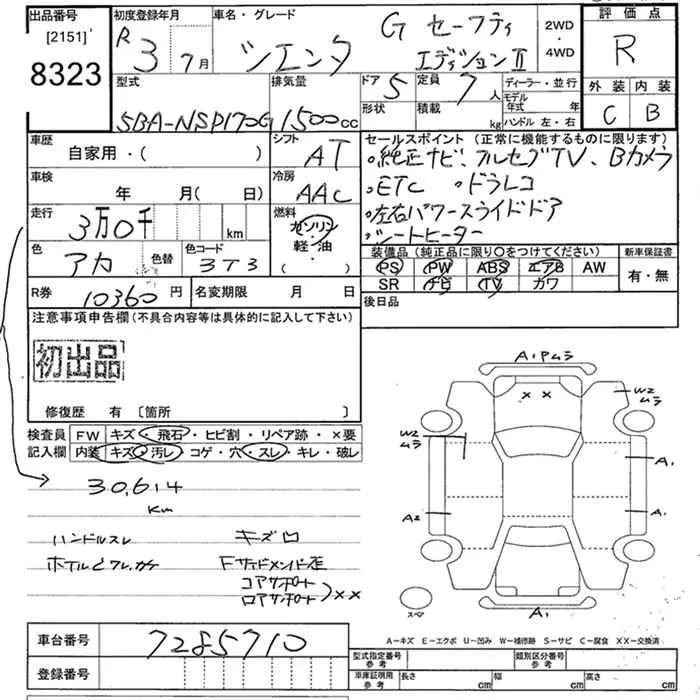 出品番号
[2151]
8323
初度登録年月
R 3 7月
車名・グレード
シエンタ
G セーフティ
エディションⅡ
2WD
・
4WD
評価点
R
外装 内装
C B
型式
5BA-NSP170G
排気量
1500cc
ドア
5
定員
7人
形状
積載
kg
ディーラー・並行
モデル
年式 年
ハンドル 左・右
車歴
自家用・( )
シフト
AT
車検
年 月( 日)
冷房
AAC
走行
3万0千 km
燃料
ガソリン
・
軽・油
・
( )
色
アカ
色替
色コード
3T3
R券
10360円
名変期限 月 日
セールスポイント (正常に機能するものに限ります)
・純正ナビ、フルセグTV、Bカメラ
・ETC ・ドラレコ
・左右パワースライドドア
・シートヒーター
装備品 (純正品に限り○をつけてください)
PS PW ABS エアB AW
SR ナビ TV カワ
新車保証書
有・無
後日品
注意事項申告欄 (不具合内容等は具体的に記入して下さい)
初出品
修復歴 有 〔箇所 〕
検査員
記入欄
FW キズ・飛石・ヒビ割・リペア跡・×要
内装 キズ・汚レ・コゲ・穴・スレ・キレ・破レ
30,614
Km
ハンドルスレ
キズ凹
コアサポート
ロアサポート
××
A1 Pムラ
× ×
W2
ムラ
W2
ムラ
A1
A2
A1
A1
スペア
A-キズ E-エクボ U-凹み W-補修跡 S-サビ C-腐食 XX-交換済
車台番号
7285710
登録番号
型式指定番号
参考
類別区分番号
参考
車庫証明用
参考
長さ cm
幅 cm
高さ cm